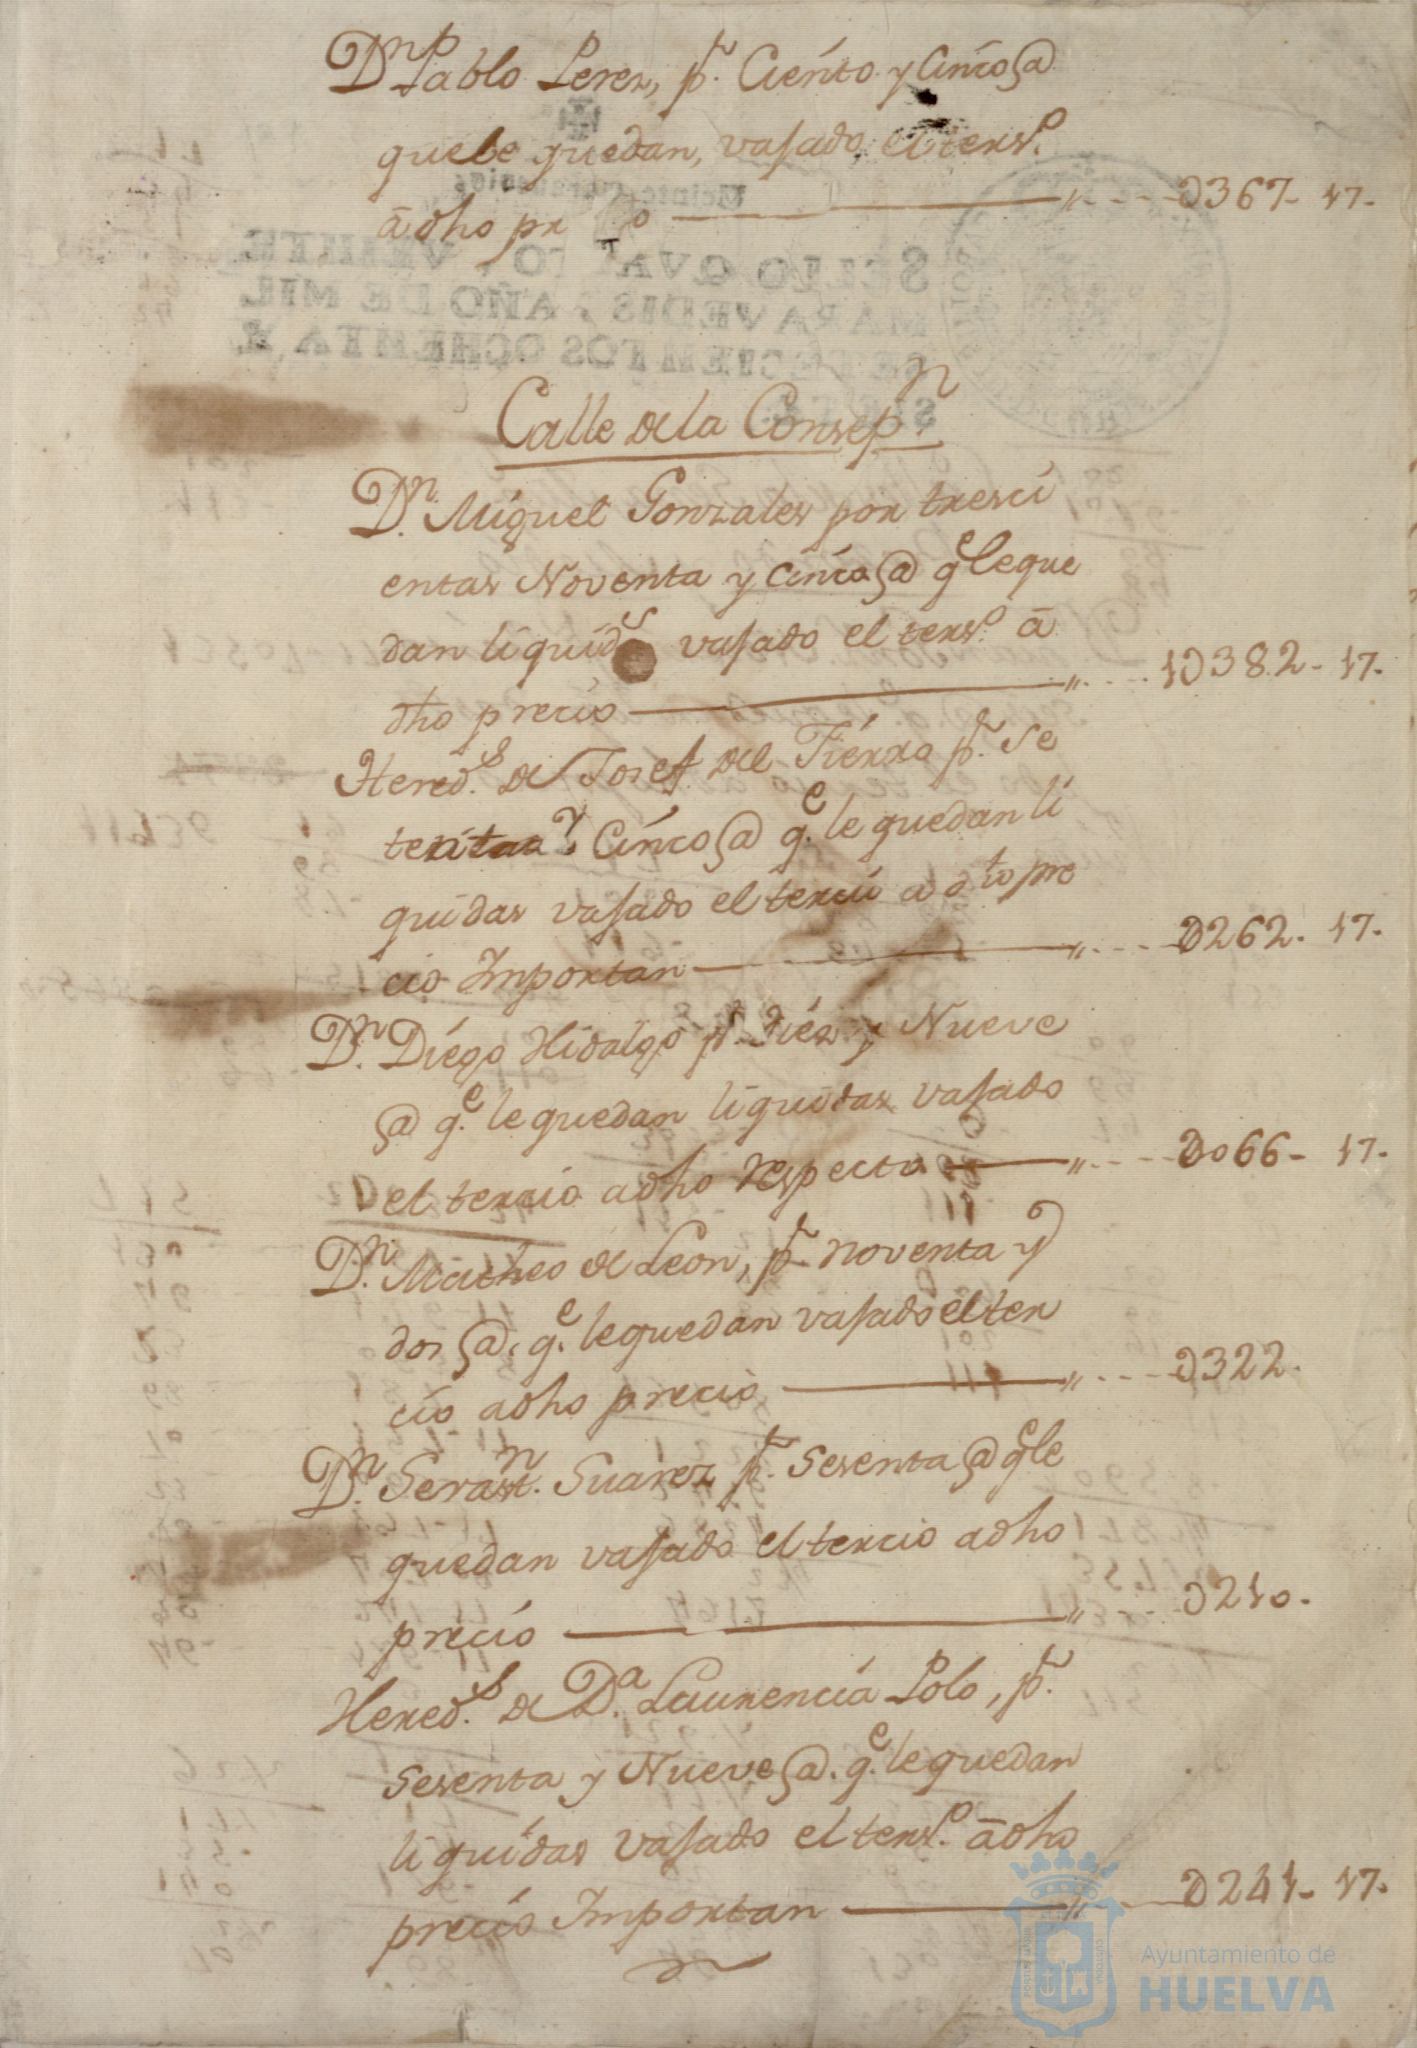 Dn. Pablo Perez, pr. Ciento y Cinco @
que le quedan, vasado el terso.
â dho pr o ——— " ---- D367- 17.
Calle de la Consepn.
Dn. Miguel Gonzales por tresci
entas Noventa y Cinco @ qe le que
dan liquids vasado el terso. â
dho precio ——— " ---- 1D382- 17.
Hereds. de Josef del Fierro pr. Se
tentaa y Cinco @ qe. le quedan li
quidas vasado el tercio a dho pre
cio Importan ——— " ---- D262- 17.
Dn. Diego Hidalgo pr. Diez y Nueve
@ qe. le quedan liquidas vasado
el tercio a dho respecto ——— " ---- D066- 17.
Dn. Matheo de Leon, pr. noventa y
dos @. qe. le quedan vasado el ter
cio a dho precio ——— " ---- D322.
Dn. Sevastn. Suarez pr. Sesenta @ qe le
quedan vasado el tercio a dho
precio ——— " ---- D210.
Hereds. de Da. Laurencia Polo, pr.
Sesenta y Nueve @. qe. le quedan
liquidas vasado el terso. â dho
precio Importan ——— " ---- D241- 17.
Ayuntamiento de
HUELVA